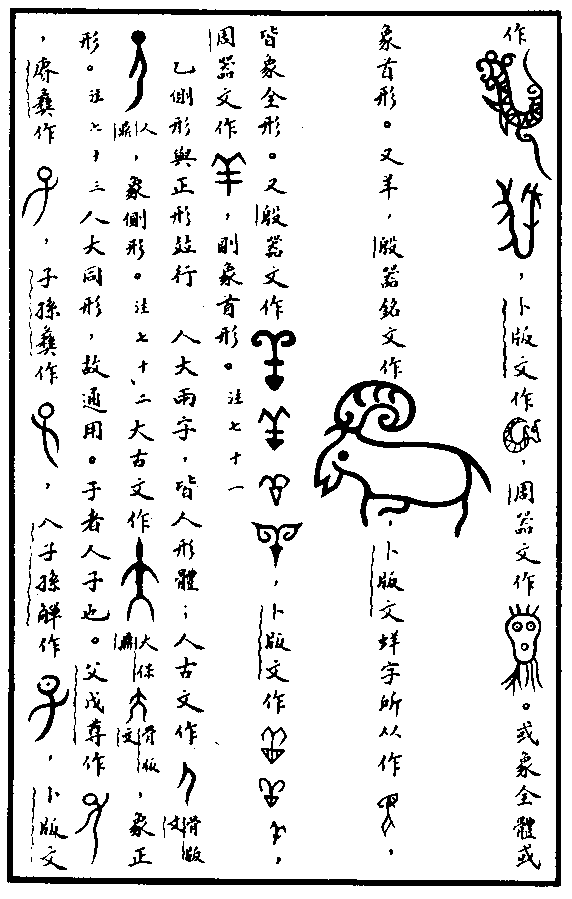 作，卜版文作，周器文作。或象全體或
象首形。又羊，殷器銘文作，卜版文蛘字所从作，
皆象全形。又殷器文作，卜版文作，
周器文作，則象首形。注七十一
乙側形與正形竝行　人大兩字，皆人形體；人古文作骨版文
人鼎，象側形。注七十二大古文作大保鼎骨版文，象正
形。注七十三人大同形，故通用。子者人子也。父戊尊作
，彝作，子孫彝作，八子孫觶作，卜版文